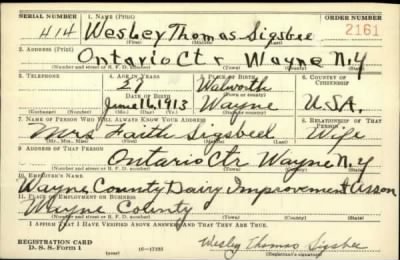 SERIAL NUMBER 1. NAME (Print) ORDER NUMBER
414 Wesley Thomas Sigsbee 2161
(First) (Middle) (Last)
2. ADDRESS (Print)
Ontario Ctr Wayne N.Y
(Number and street or R. F. D. number) (Town) (County) (State)
3. TELEPHONE 4. AGE IN YEARS 5. PLACE OF BIRTH 6. COUNTRY OF CITIZENSHIP
27 Walworth
DATE OF BIRTH (Town or county)
June 16, 1913 Wayne U.S.A.
(Exchange) (Number) (Mo.) (Day) (Yr.) (State or country)
7. NAME OF PERSON WHO WILL ALWAYS KNOW YOUR ADDRESS 8. RELATIONSHIP OF THAT PERSON
Mrs Faith Sigsbee Wife
(Mr., Mrs., Miss) (First) (Middle) (Last)
9. ADDRESS OF THAT PERSON
Ontario Ctr Wayne N.Y
(Number and street or R. F. D. number) (Town) (County) (State)
10. EMPLOYER'S NAME
Wayne County Dairy Improvement Assn
11. PLACE OF EMPLOYMENT OR BUSINESS
Wayne County
(Number and street or R. F. D. number) (Town) (County) (State)
I AFFIRM THAT I HAVE VERIFIED ABOVE ANSWERS AND THAT THEY ARE TRUE.
REGISTRATION CARD
D. S. S. Form 1 (over) 16—17105 Wesley Thomas Sigsbee
(Registrant's signature)